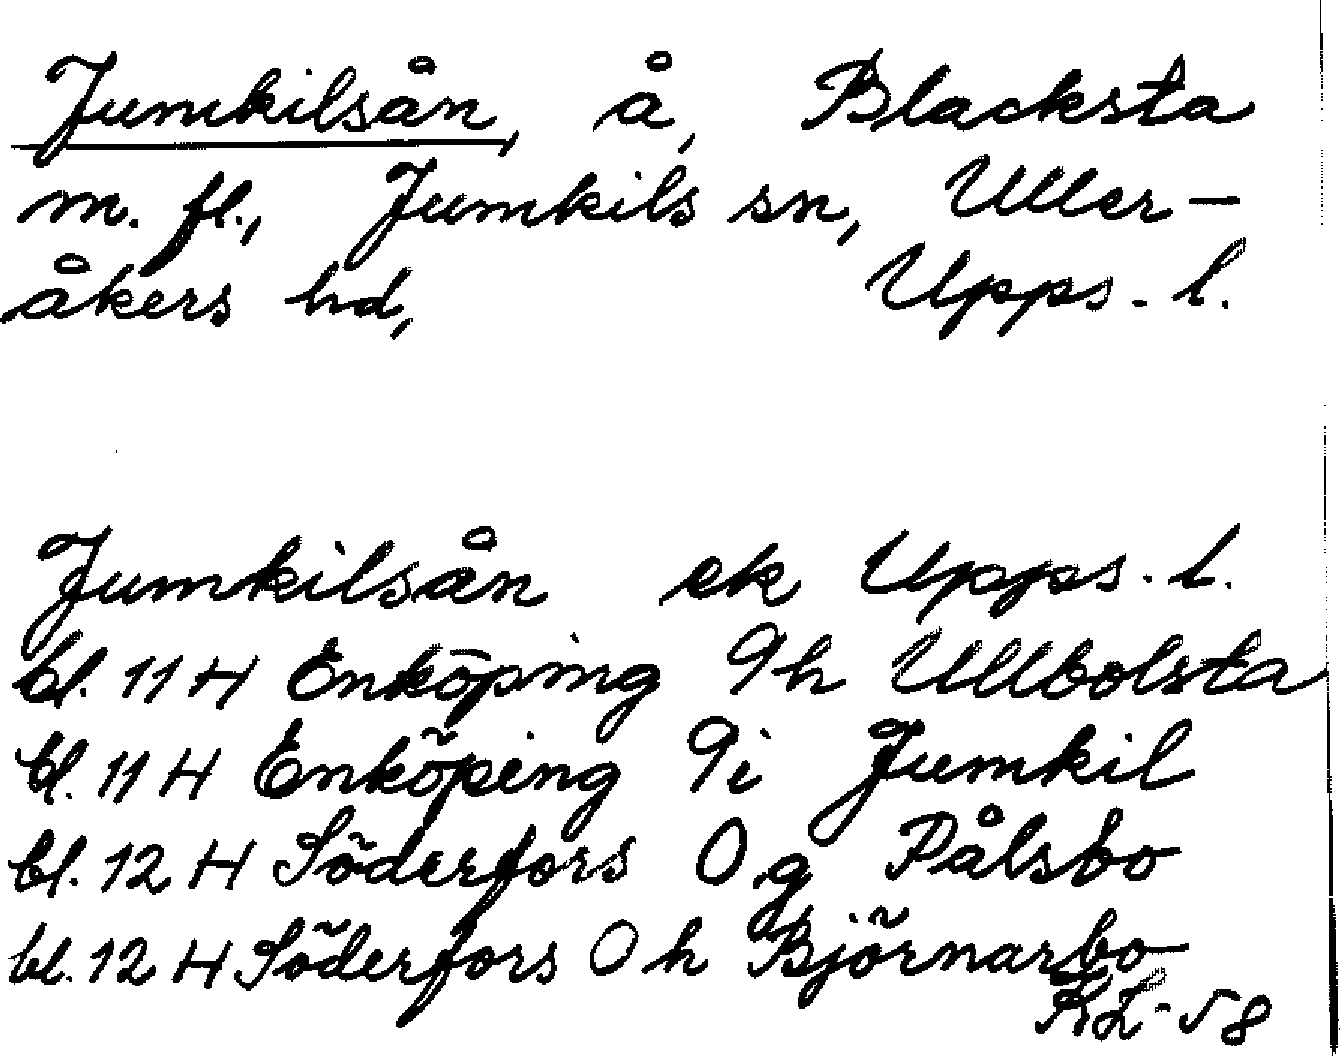 Jumkilsån, å, Blacksta
m. fl., Jumkils sn, Uller-
åkers hd, Upps. l.
Jumkilsån ek Upps. l.
bl. 11 H Enköping 9h Ullbolsta
bl. 11 H Enköping 9i Jumkil
bl. 12 H Söderfors 0g Pålsbo
bl. 12 H Söderfors 0h Björnarbo
KL-58